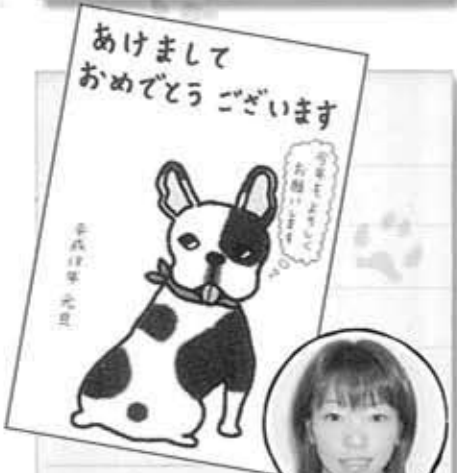 あけまして
おめでとう ございます
今年もよろしく
お願いします
平成18年 元旦